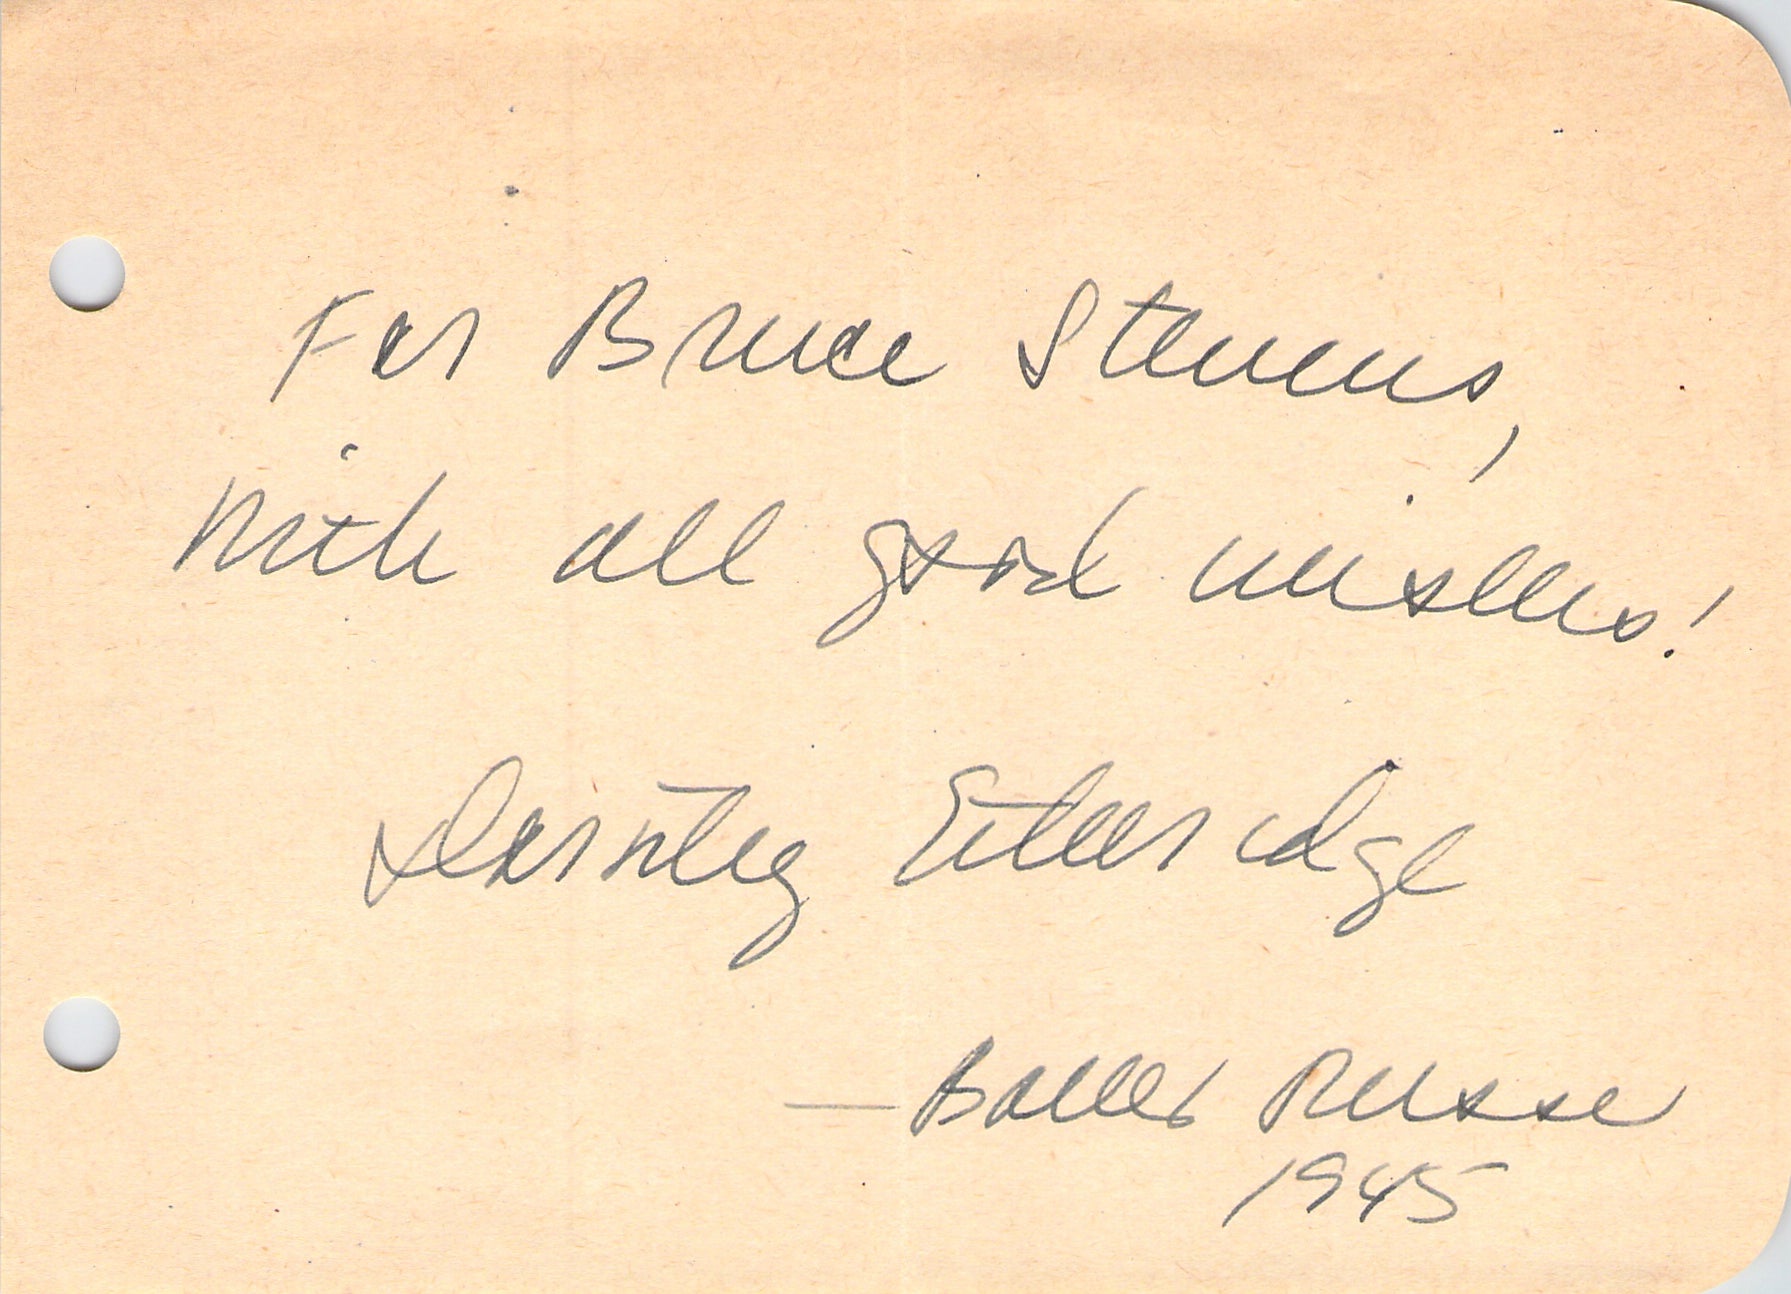 For Bruce Stevens,
With all good wishes!
Dorothy Etheridge
— Ballet Russe
1945